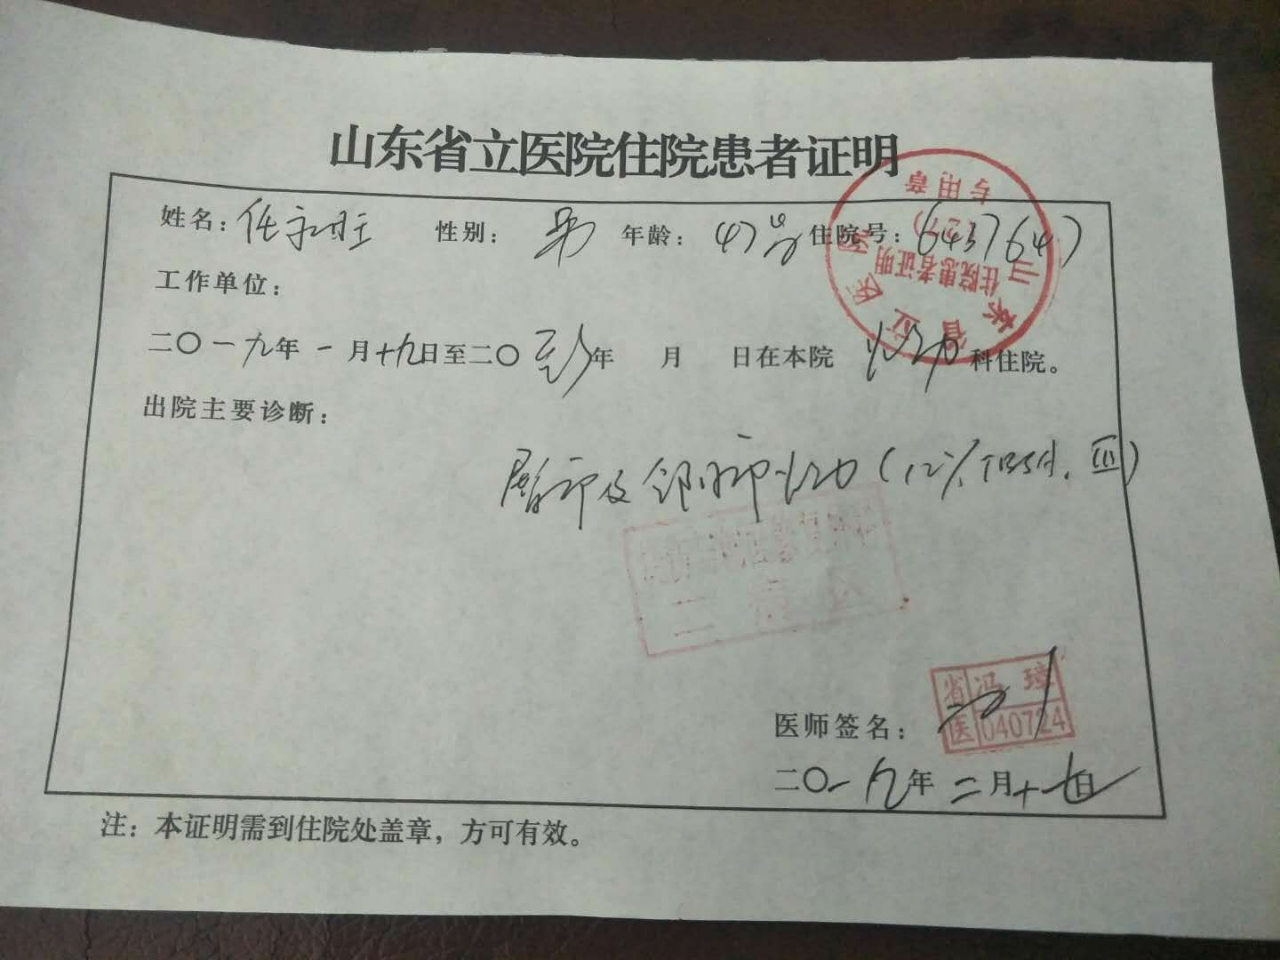 山东省立医院住院患者证明
姓名：任 性别：男 年龄：47岁 住院号：6437647
工作单位：
二〇一九年一月十九日至二〇至今年 月 日在本院 烧伤 科住院。
出院主要诊断：
臀部及 部烧伤（12% TBSA. Ⅲ）
二 病 区
医师签名：
省医 冯 璋 040724
二〇一九年二月十七日
注：本证明需到住院处盖章，方可有效。
山东省立医院
住院患者证明
专用章